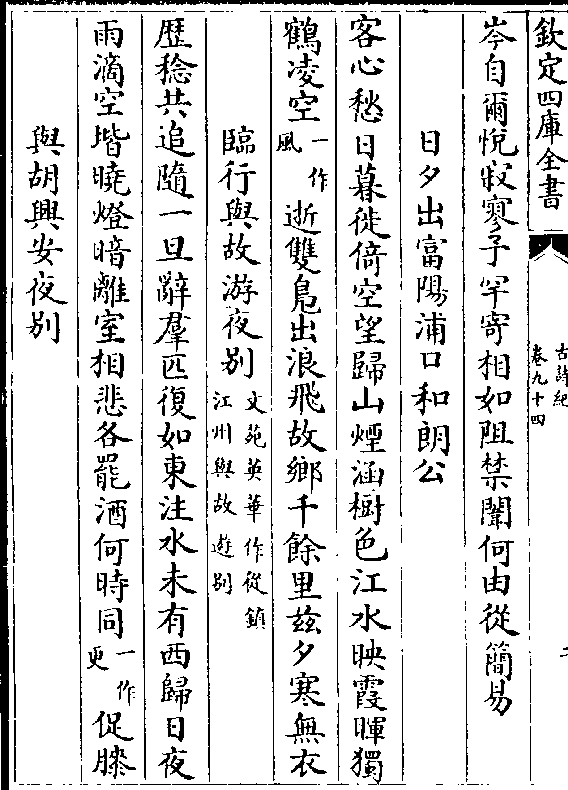 欽定四庫全書
古詩紀
卷九十四
岑自爾悅寂寥子罕寄相如阻禁闈何由從簡易
日夕出富陽浦口和朗公
客心愁日暮徙倚空望歸山煙涵樹色江水映霞暉獨
鶴凌空一作風逝雙鳧出浪飛故鄉千餘里茲夕寒無衣
臨行與故游夜別文苑英華作從鎮江州與故遊別
歷稔共追隨一旦辭羣匹復如東注水未有西歸日夜
雨滴空堦曉燈暗離室相悲各罷酒何時同一作更促膝
與胡興安夜別